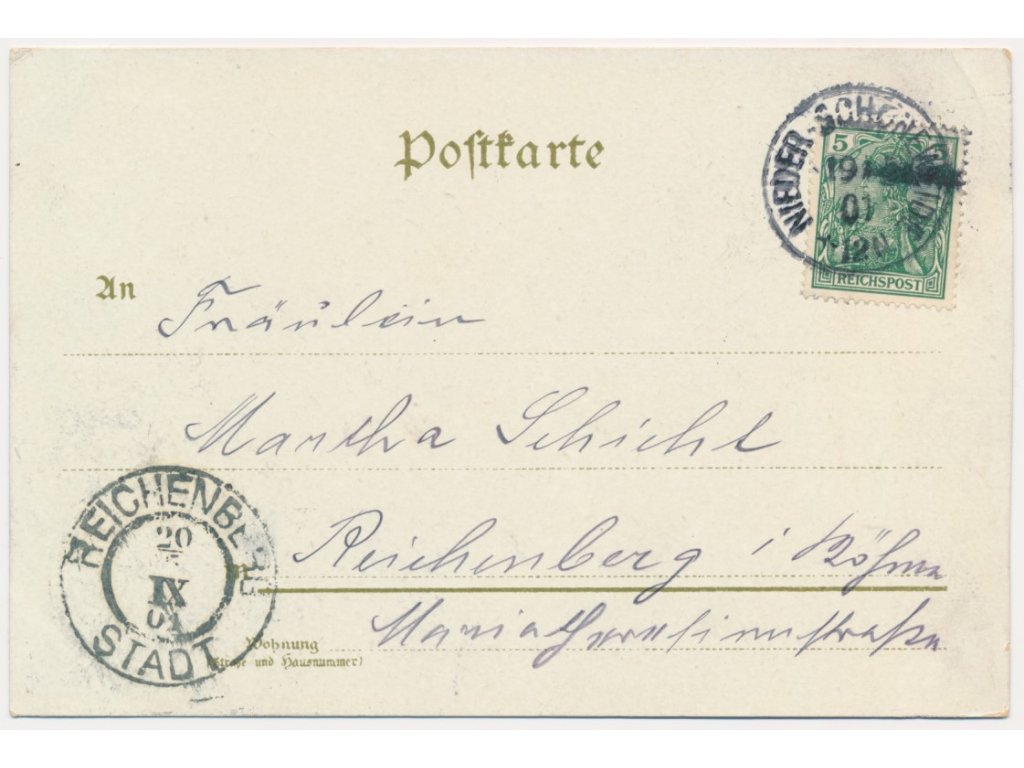 Postkarte
NIEDER-SCHÖNEWEIDE
5
19
01
7-12N
REICHSPOST
An Fräulein
Martha Schicht
Reichenberg i Böhmen
REICHENBERG
20
IX
01
STADT
Wohnung
(Straße und Hausnummer)
Mariatheresienstraße